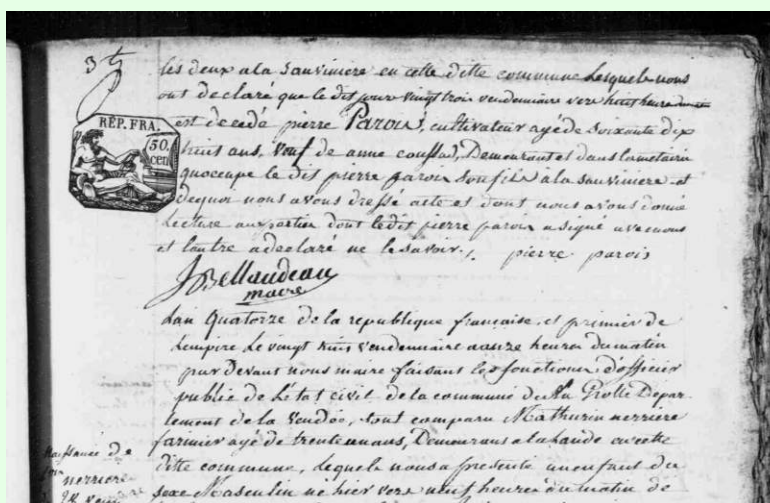 3
les deux a la Sauviniere en cette ditte commune Lesquels nous
ont declaré que le dit jour vingt trois vendemiaire vers huit heure
RÉP. FRA.
50.
cen
est decedé pierre Parois, cultivateur agé de Soixante dix
huit ans, veuf de anne Demeurant et dans la metairie
quoccupe le dit pierre parois son fils à la Sauviniere et
dequoi nous avons dressé acte et dont nous avons donné
Lecture aux parties dont ledit pierre parois a signé avec nous
et lautre a declaré ne le savoir. pierre parois
JBellaudeau
maire
Lan Quatorze de la republique française, et premier de
Lempire Le vingt huit vendemiaire a onze heures du matin
par Devant nous maire faisant les fonctions d'officier
public de Letat civil de la commune de Depar
tement de la Vendée, sont comparu Mathurin nerriere
farinier agé de trente un ans, Demeurant a la Lande en cette
ditte commune, lequele nous a presenté un enfant du
Sexe Masculin né hier vers neuf heures du matin de
Naissance de
nerriere